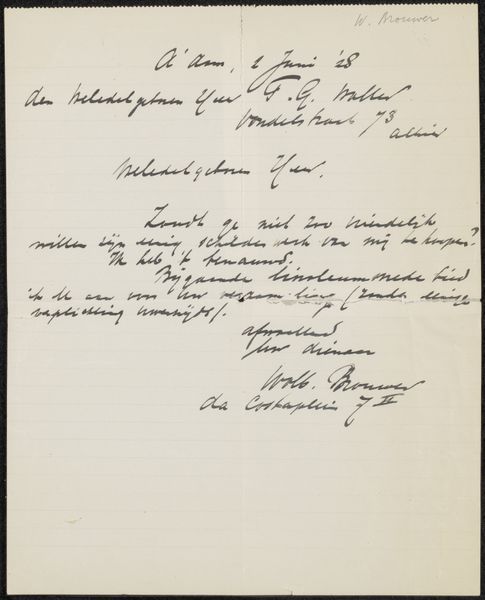 W. Brouwer
A'dam, 2 Juni '28
den Weledelgeboren Heer F. G. Waller
Vondelstraat 73
alhier
Weledelgeboren Heer.
Zoudt ge niet zoo vriendelijk
willen zijn eenig schilderwerk van mij te koopen?
Ik heb 't benauwd.
Bijgaande linoleumsnede bied
ik de aan voor Uw verzameling (zonder eenige
verplichting Uwerzijds).
afwachtend
Uw dienaar
Wolb. Brouwer
da Costaplein 7 II